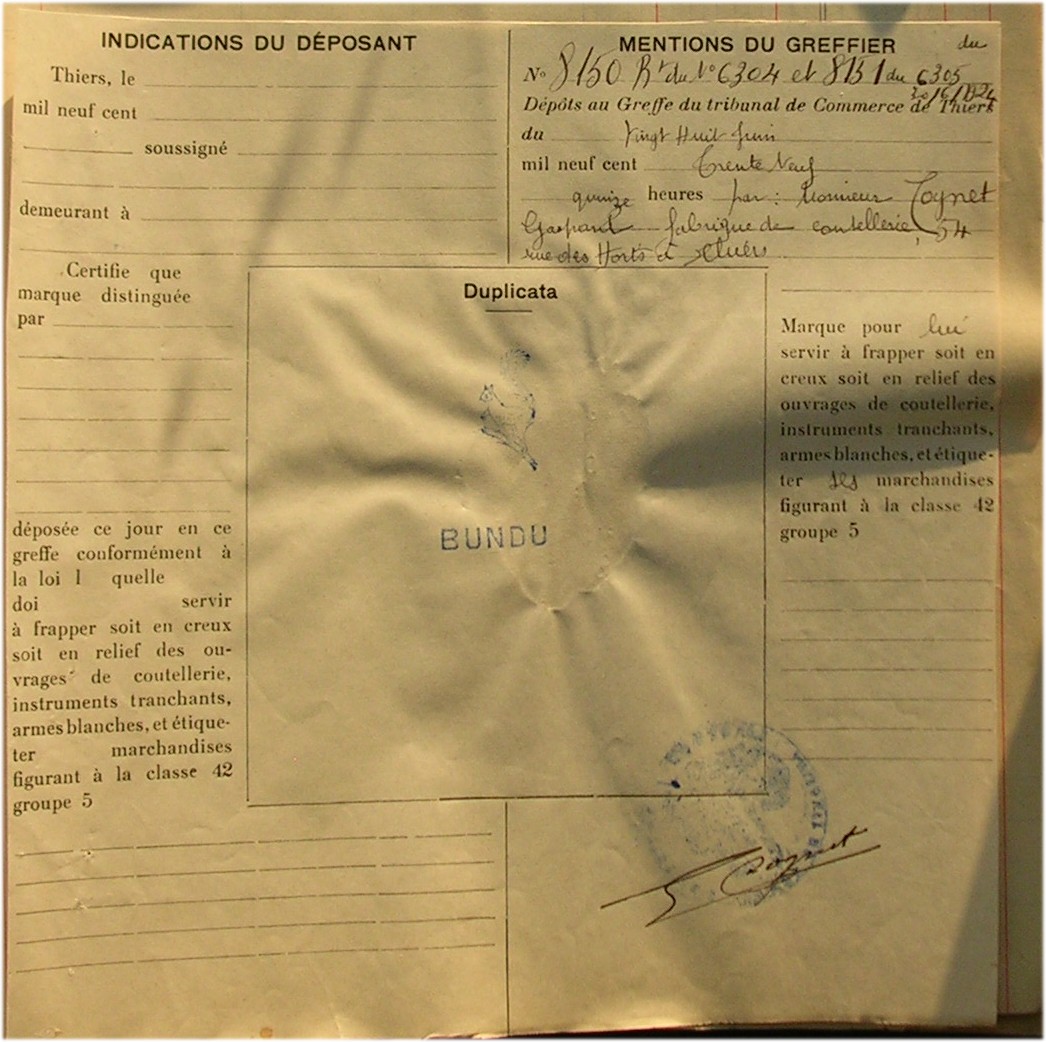 INDICATIONS DU DÉPOSANT
Thiers, le
mil neuf cent
soussigné
demeurant à
Certifie que
marque distinguée
par
déposée ce jour en ce
greffe conformément à
la loi l quelle
doi servir
à frapper soit en creux
soit en relief des ou-
vrages de coutellerie,
instruments tranchants,
armes blanches, et étique-
ter marchandises
figurant à la classe 42
groupe 5
MENTIONS DU GREFFIER du
No 8150 Rt du No 6304 et 8151 du 6305
Dépôts au Greffe du tribunal de Commerce de Thiers
du Vingt Huit Juin
mil neuf cent Trente Neuf
quinze heures par : Monsieur Cognet
Gaspard fabrique de coutellerie, 54
rue des Horts à Thiers
Duplicata
BUNDU
Marque pour lui
servir à frapper soit en
creux soit en relief des
ouvrages de coutellerie,
instruments tranchants,
armes blanches, et étique-
ter ses marchandises
figurant à la classe 42
groupe 5
G Cognet